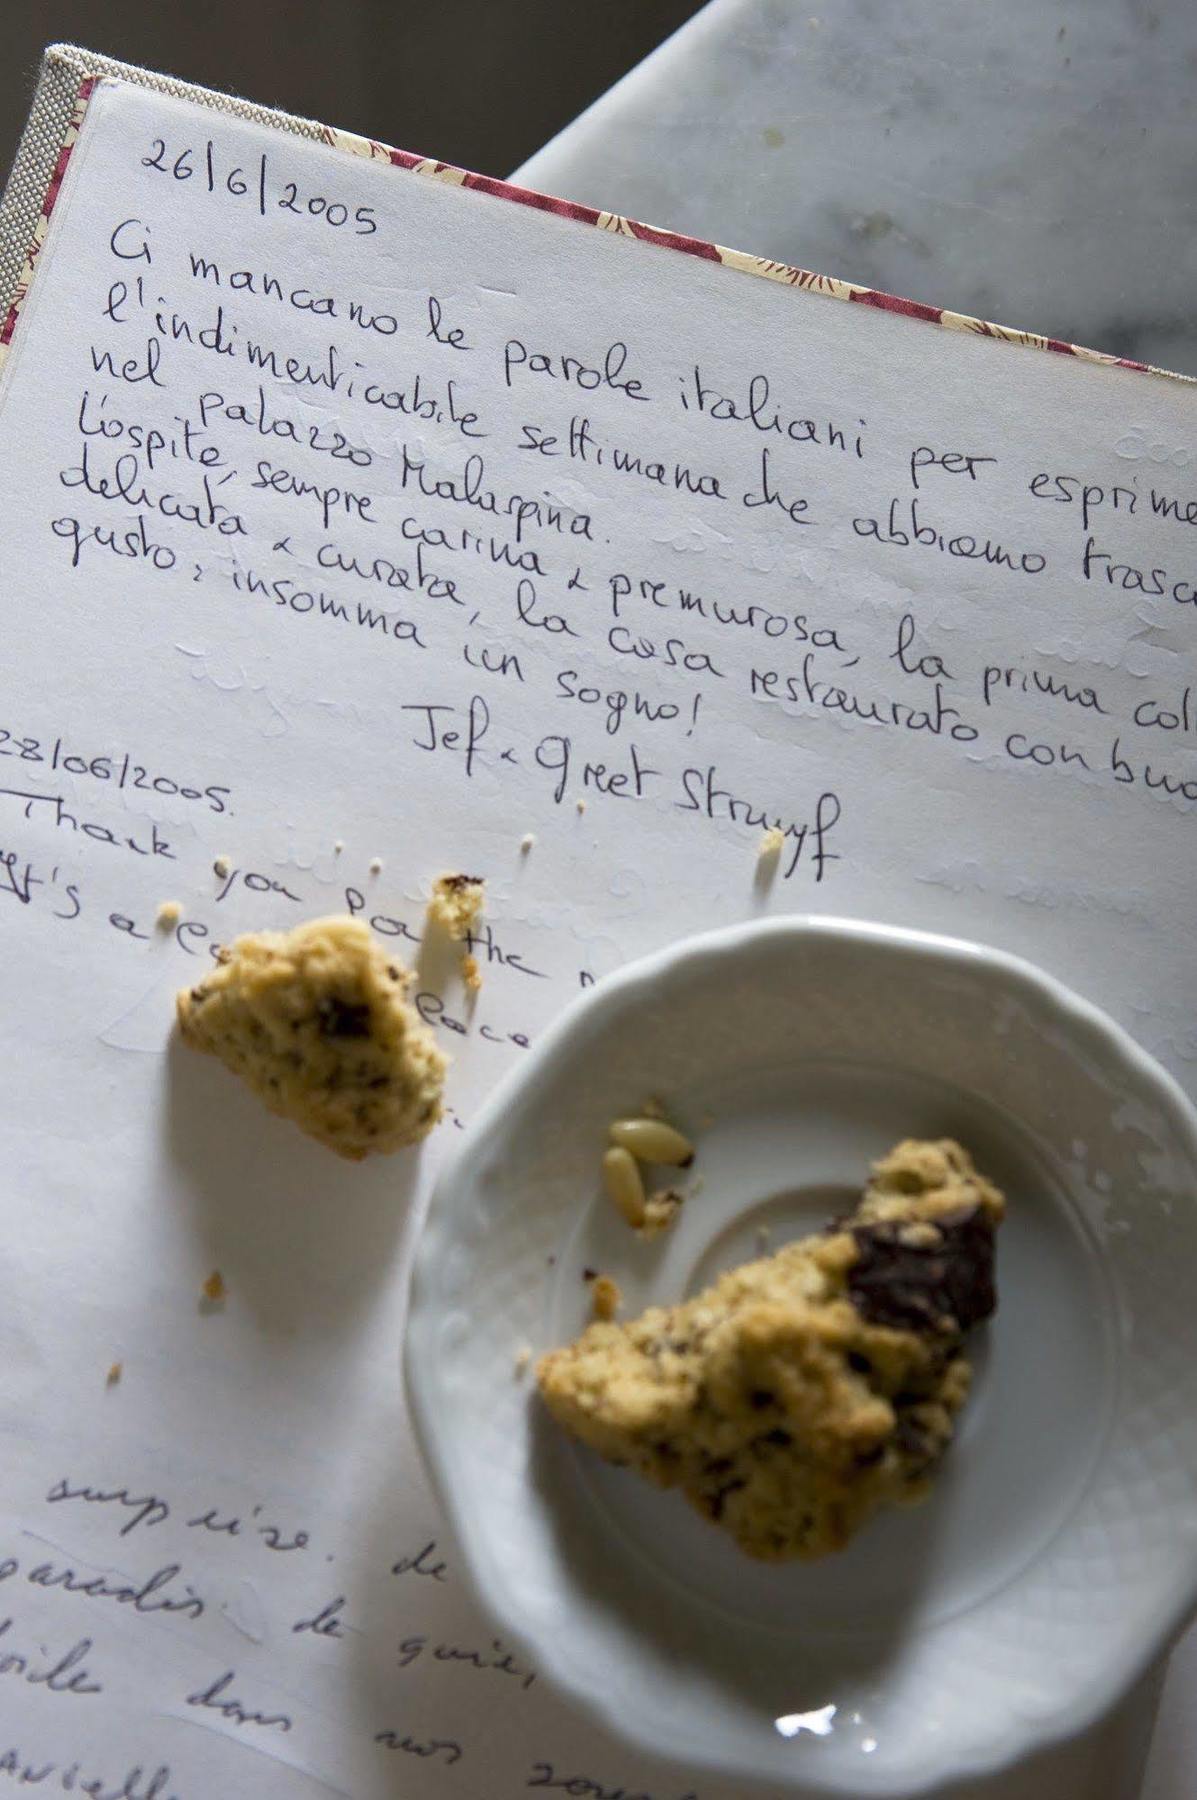 26/6/2005
Ci mancano le parole italiani per esprime
l'indimenticabile settimana che abbiamo trasc
nel palazzo Malaspina.
L'ospite, sempre carina & premurosa, la prima col
delicata & curata, la casa restaurato con buo
gusto, insomma un sogno!
Jef & Greet Struyf
28/06/2005.
Thank you for the
It's a
surprise. de
paradis. Le
dans nos